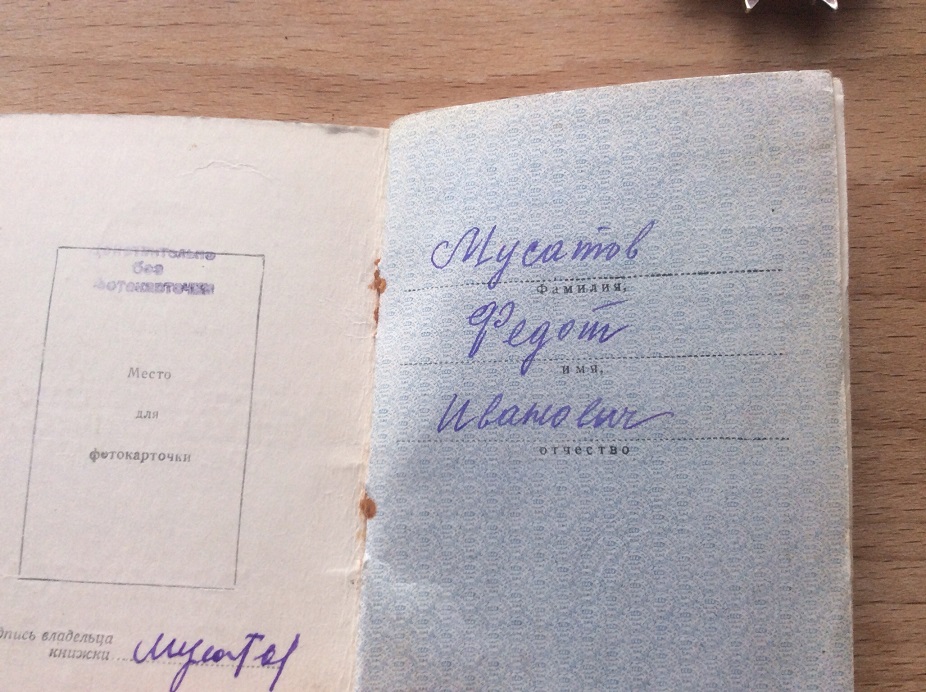 Действительно
без
фотокарточки
Место
для
фотокарточки
дпись владельца
книжки
Мусатов
Мусатов
Фамилия,
Федот
имя,
Иванович
отчество